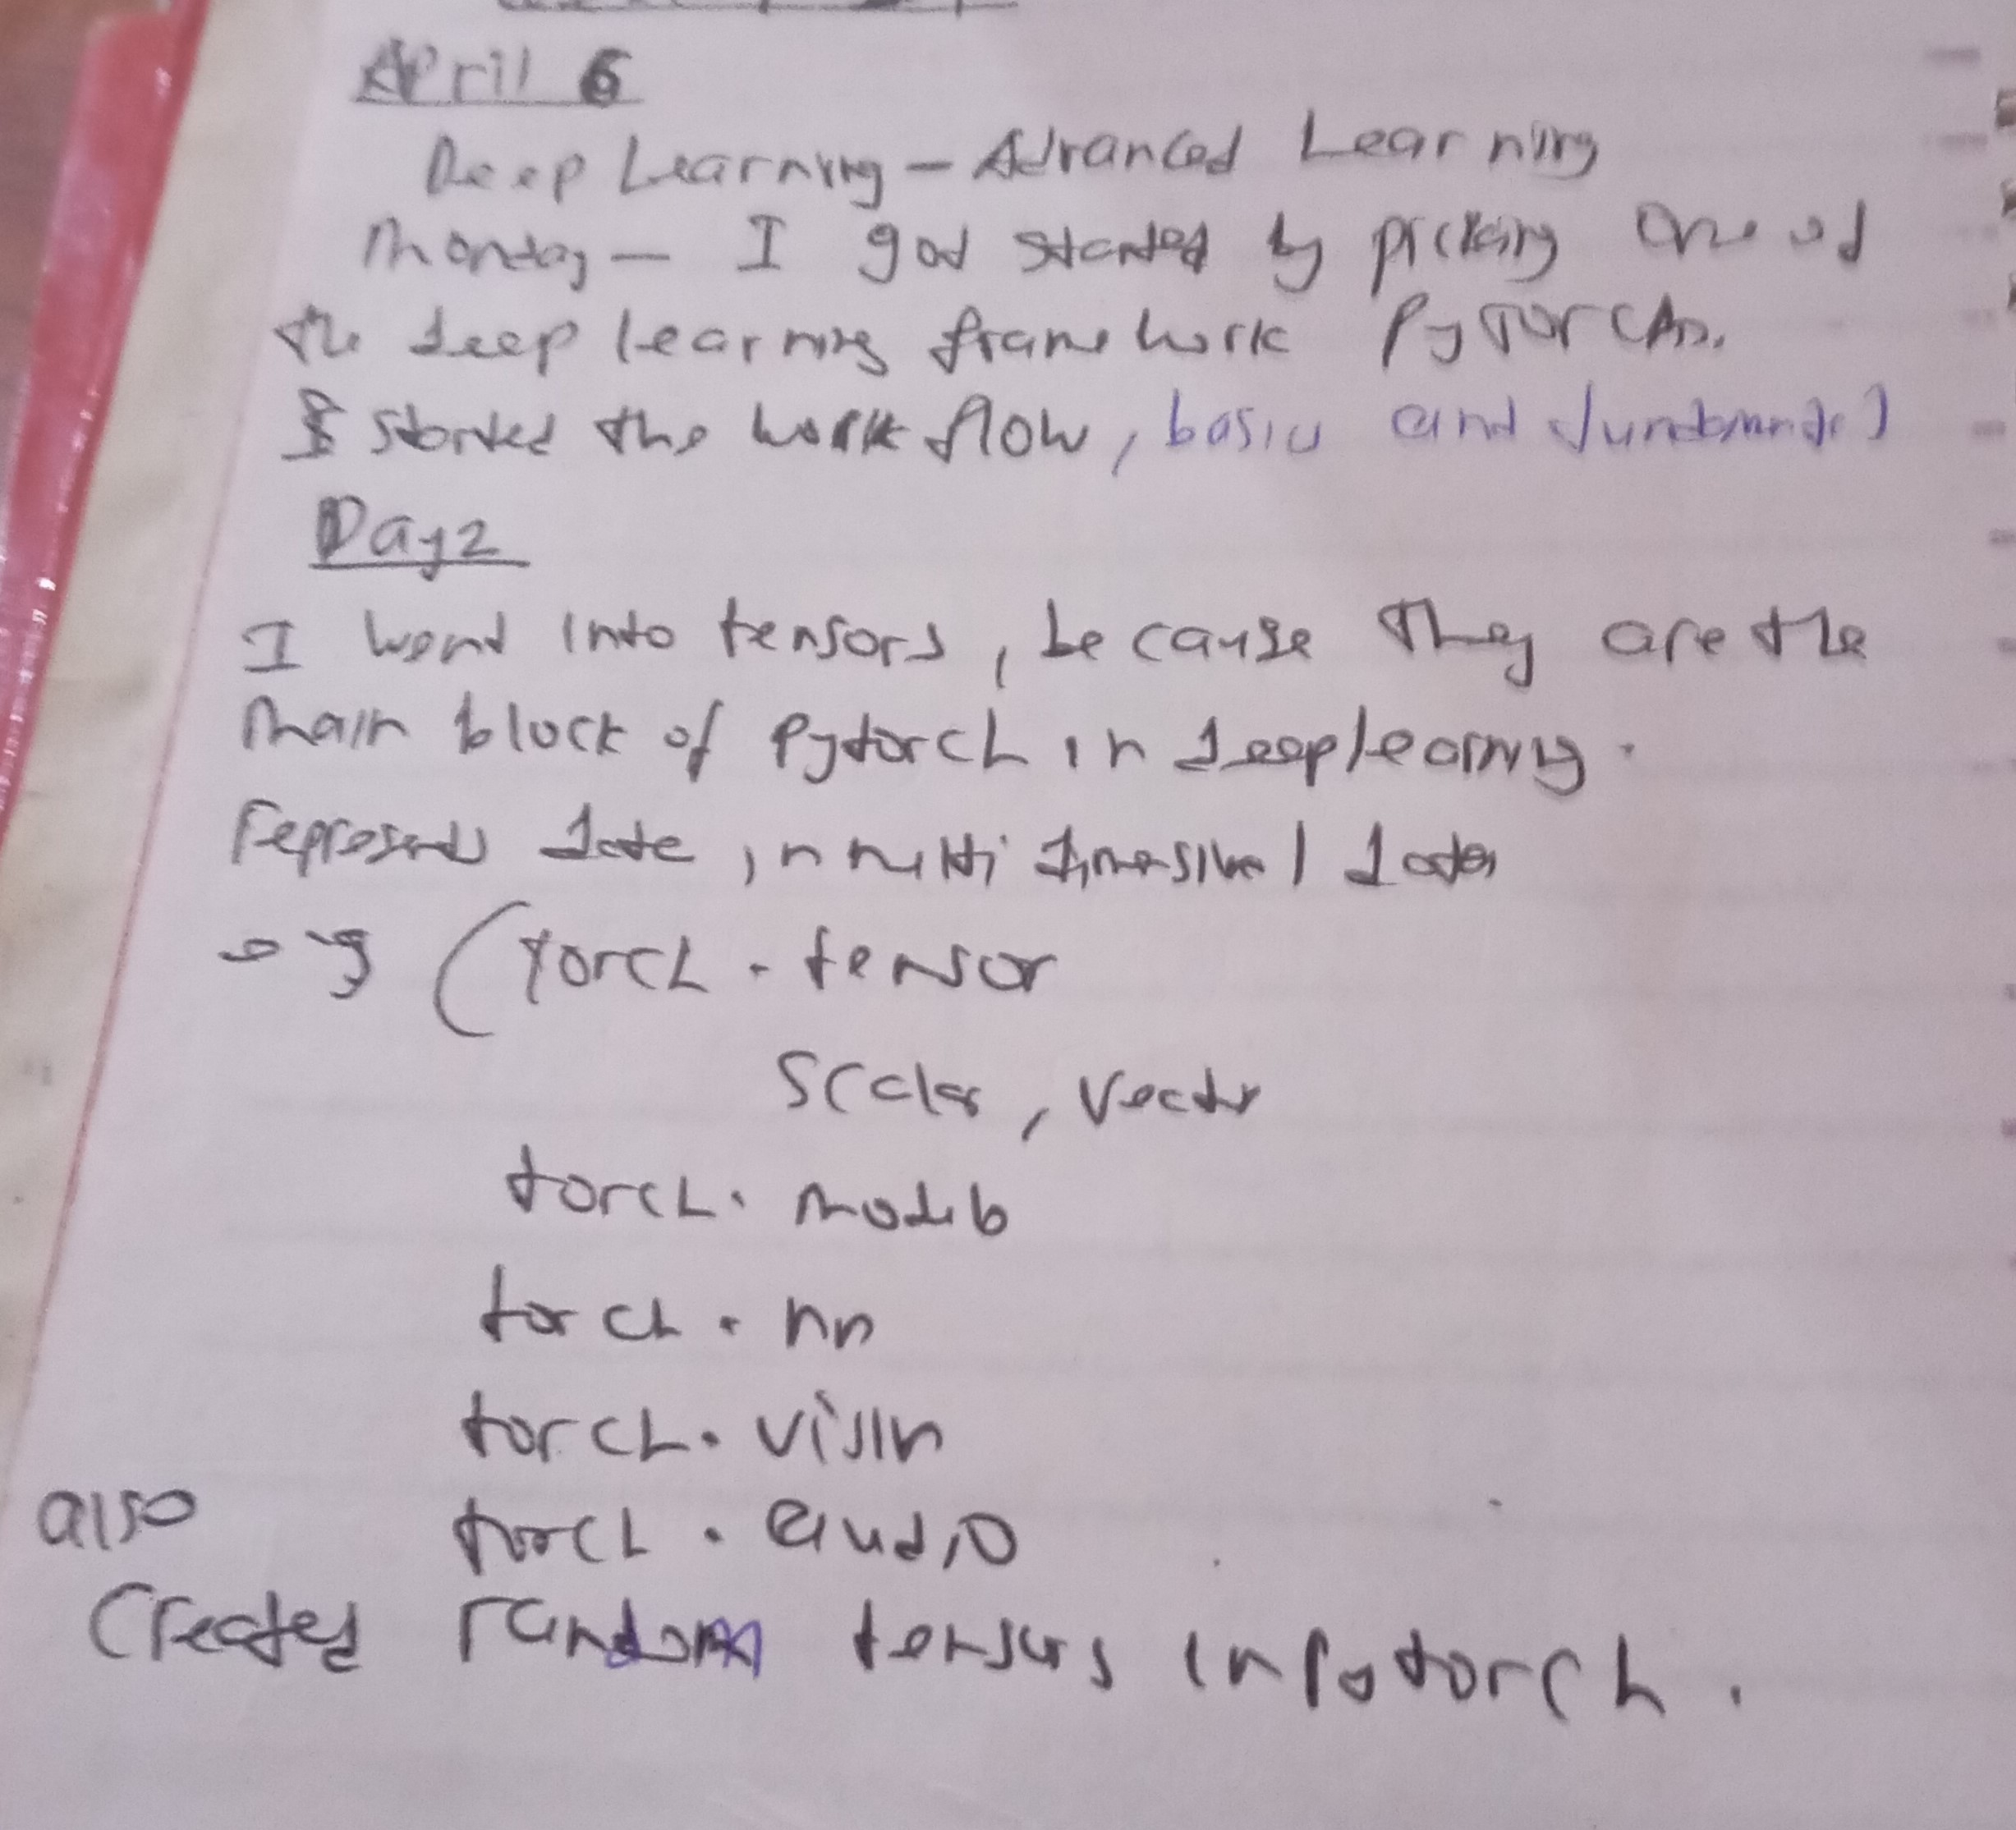 April 6
Deep Learning - Advanced Learning
Monday - I got started by picking one of
the deep learning framework PyTorch.
I started the workflow, basic and fundamental
Day 2
I went into tensors, because they are the
main block of Pytorch in deep learning.
represents data, in multi dimensional data
e.g (torch.tensor
scalar, vector
torch.
torch.nn
torch.vision
also torch.audio
Created random tensors in Pytorch.